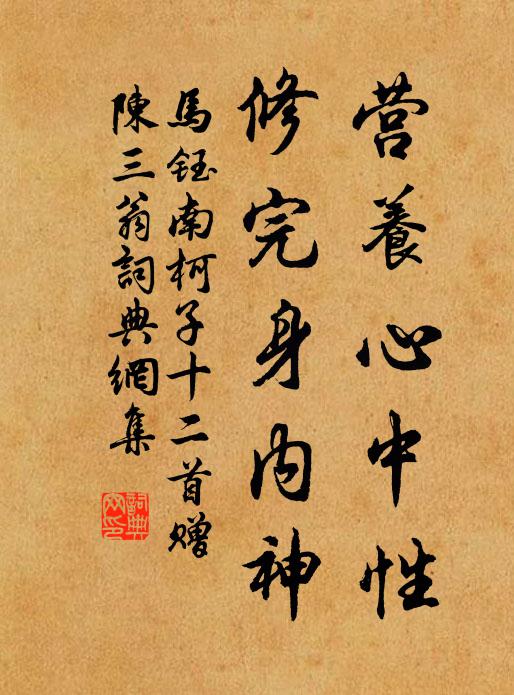 营養心中性
修完身内神
馬钰南柯子十二首赠
陳三翁詞典網集
詞典網印